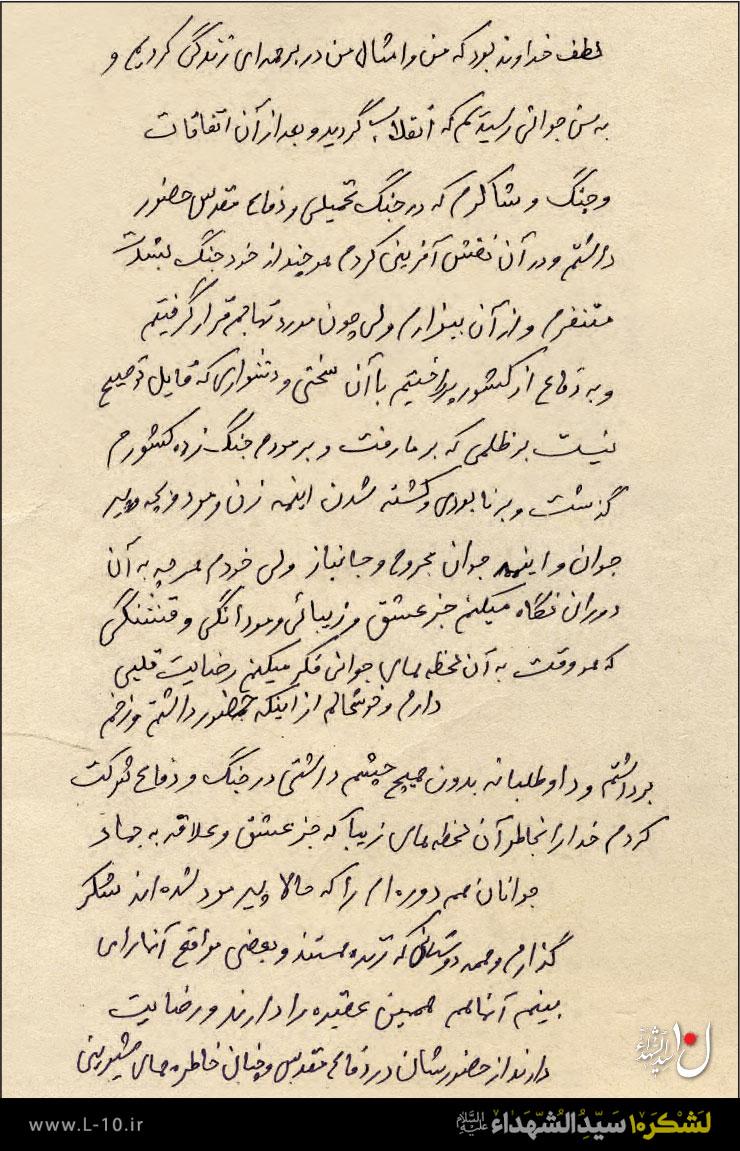 لطف خداوند بود که من و امثال من در برهه‌ای زندگی کردیم و
به سن جوانی رسیدیم که انقلاب گردید و بعد از آن اتفاقات
و جنگ و شاکرم که در جنگ تحمیلی و دفاع مقدس حضور
داشتم و در آن نقش آفرینی کردم هر چند از خود جنگ بشدت
متنفرم و از آن بیزارم ولی چون مورد تهاجم قرار گرفتیم
و به دفاع از کشور پرداختیم با آن سختی و دشواری که قابل توصیح
نیست بر ظلمی که بر ما رفت و بر مردم جنگ زده کشورم
گذشت و بر نابودی و کشته شدن اینهمه زن و مرد و بچه و پیر
جوان و اینهمه جوان مجروح و جانباز ولی خودم هر چه به آن
دوران نگاه میکنم جز عشق و زیبائی و مردانگی و قشنگی
که هر وقت به آن لحظه های جوانی فکر میکنم رضایت قلبی
دارم و خوشحالم از اینکه حضور داشتم و زخم
برداشتم و داوطلبانه بدون هیچ چشم داشتی در جنگ و دفاع شرکت
کردم خدا را بخاطر آن لحظه های زیبا که جز عشق و علاقه به جهاد
جوانان هم دوره ام را که حالا پیر مرد شده اند شکر
گذارم و همه دوستانی که زنده هستند و بعضی مواقع آنها رای
بینم آنها هم همین عقیده را دارند و رضایت
دارند از حضورشان در دفاع مقدس و چنان خاطره های شیرینی
ل۱۰ سیدالشهداء
www.L-10.ir
لشکر۱۰ سَیِّدُالشُّهَداء عَلَیهِ السَّلام